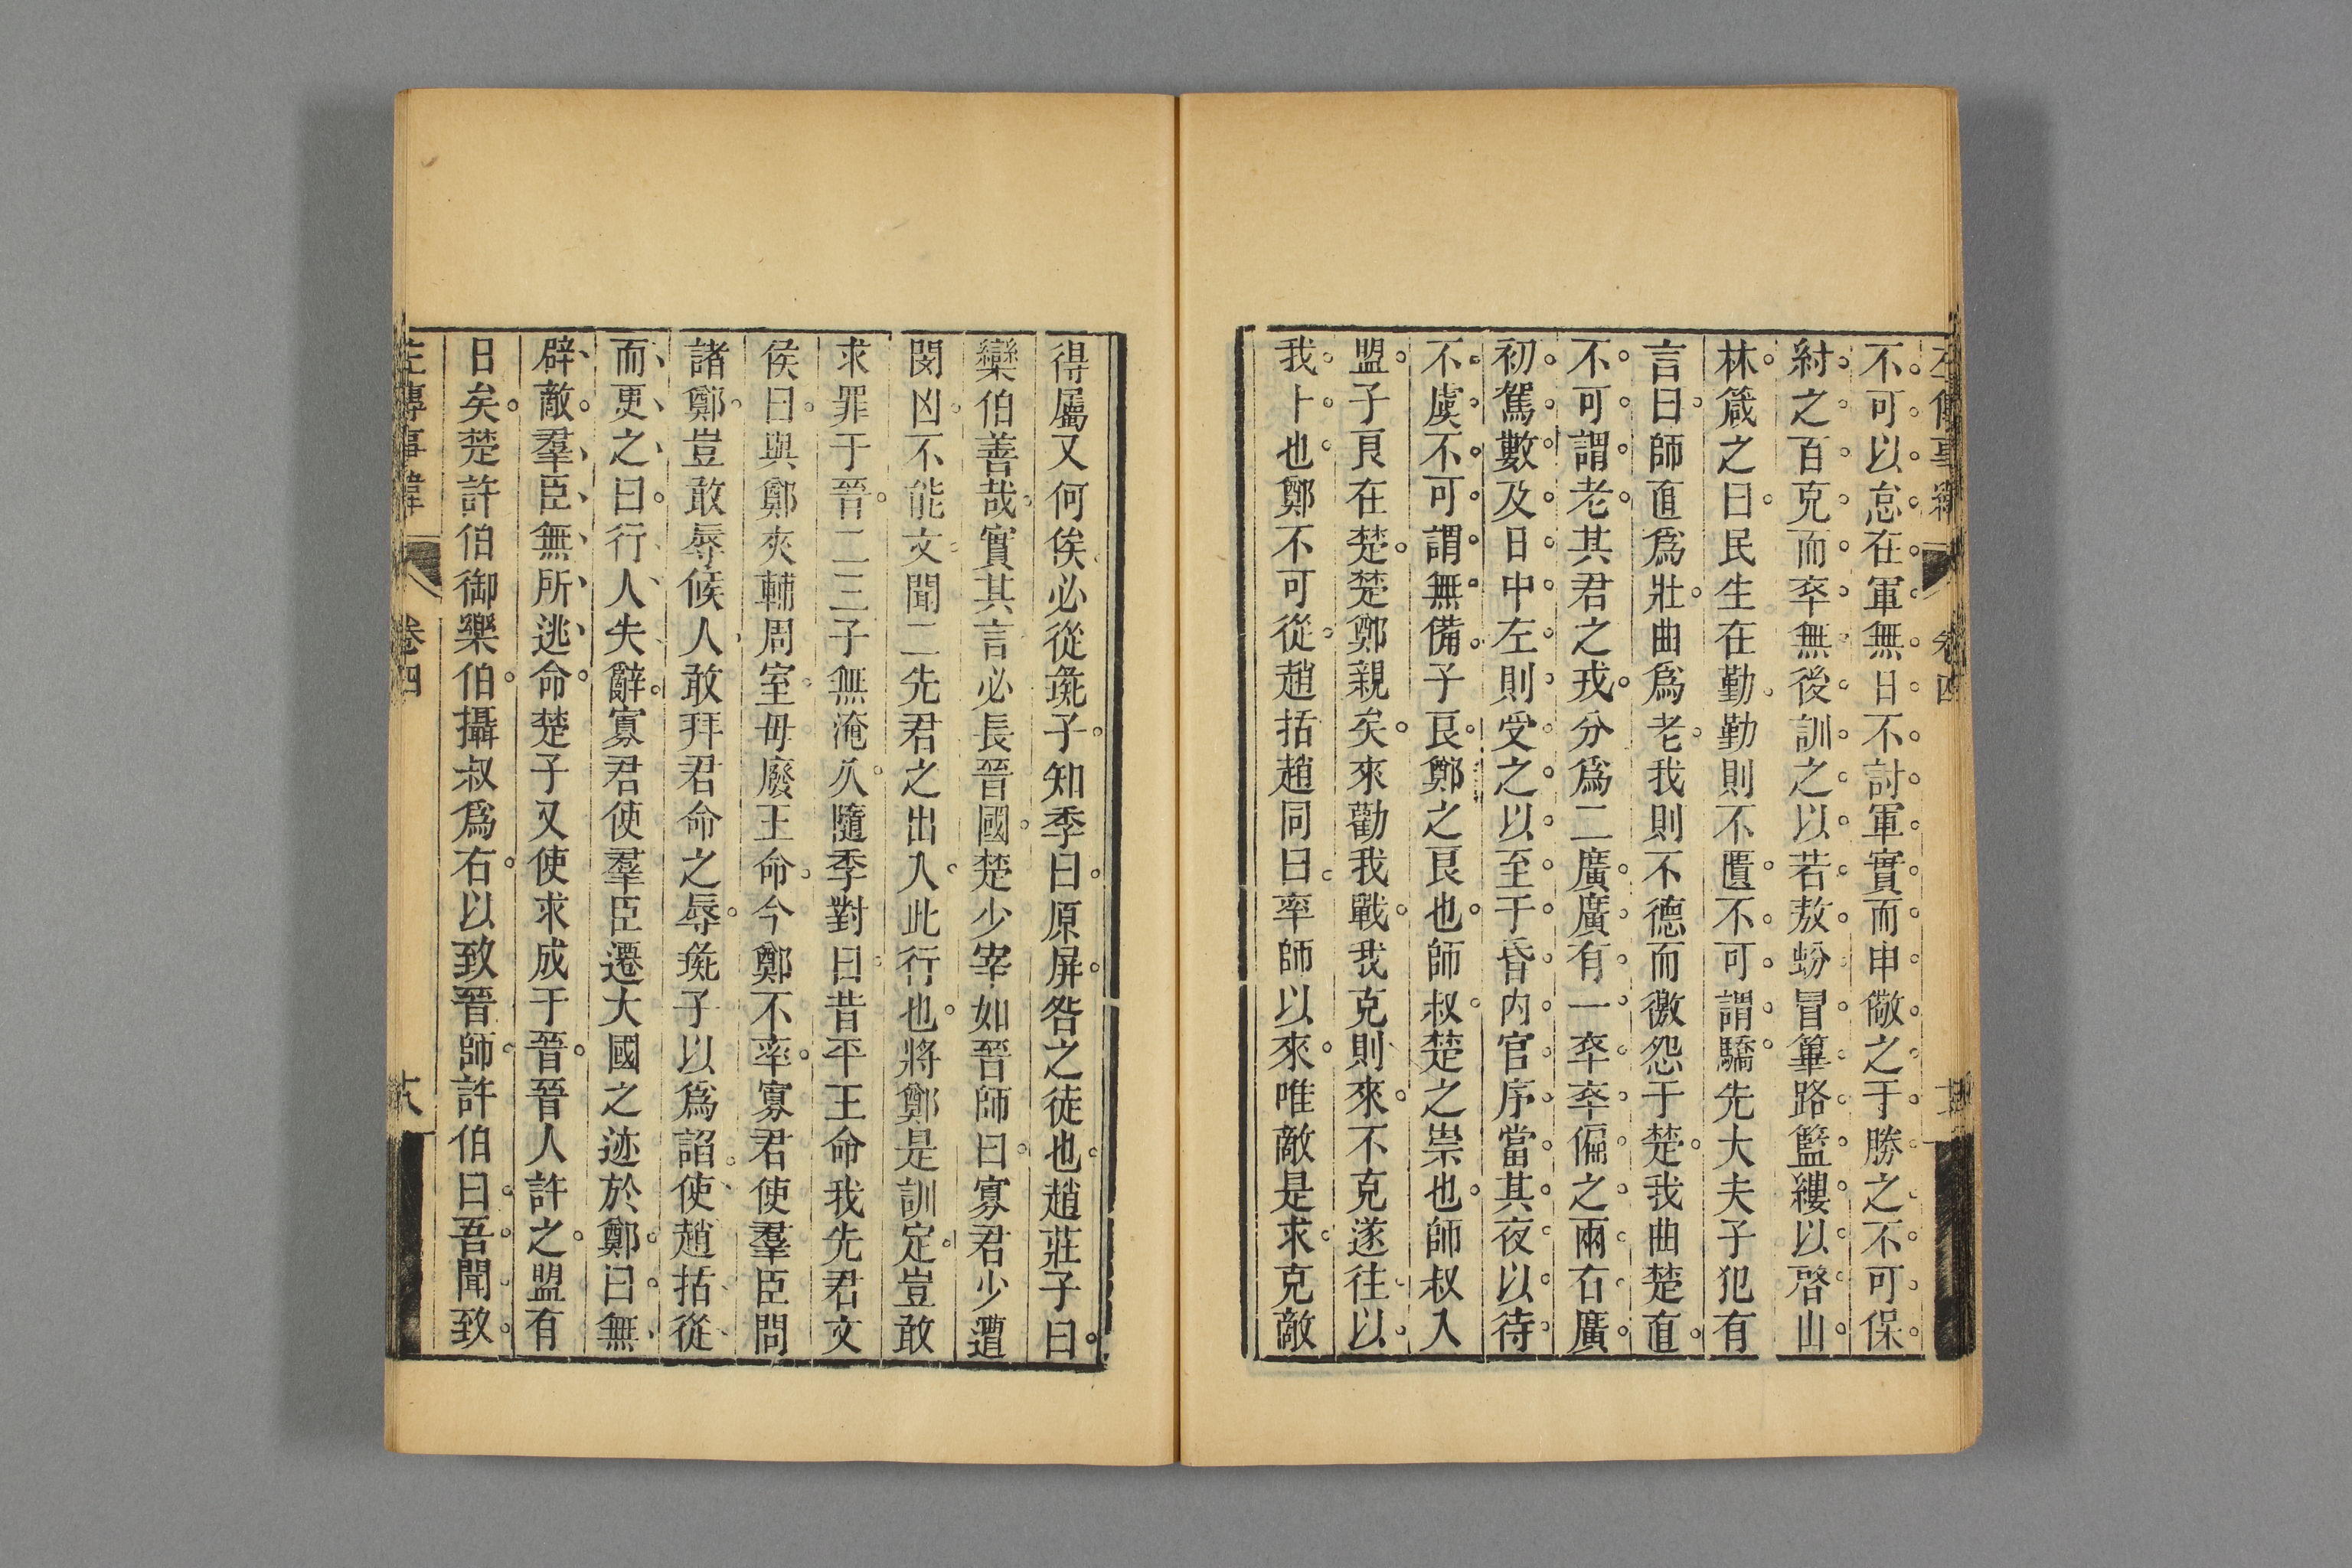 不可以怠在軍無日不討軍實而申儆之于勝之不可保
紂之百克而卒無後訓之以若敖蚡冒篳路籃縷以啓山
林箴之曰民生在勤勤則不匱不可謂驕先大夫子犯有
言曰師直爲壯曲爲老我則不德而徼怨于楚我曲楚直
不可謂老其君之戎分爲二廣廣有一卒卒偏之兩右廣
初駕數及日中左則受之以至于昏内官序當其夜以待
不虞不可謂無備子良鄭之良也師叔楚之崇也師叔入
盟子良在楚楚鄭親矣來勸我戰我克則來不克遂往以
我卜也鄭不可從趙括趙同曰率師以來唯敵是求克敵
得屬又何俟必從彘子知季曰原屏咎之徒也趙莊子曰
欒伯善哉實其言必長晉國楚少宰如晉師曰寡君少遭
閔凶不能文聞二先君之出入此行也將鄭是訓定豈敢
求罪于晉二三子無淹久隨季對曰昔平王命我先君文
侯曰與鄭夾輔周室毋廢王命今鄭不率寡君使羣臣問
諸鄭豈敢辱候人敢拜君命之辱彘子以爲諂使趙括從
而更之曰行人失辭寡君使羣臣遷大國之迹於鄭曰無
辟敵羣臣無所逃命楚子又使求成于晉晉人許之盟有
日矣楚許伯御樂伯攝叔爲右以致晉師許伯曰吾聞致
左傳事緯 卷四 十八